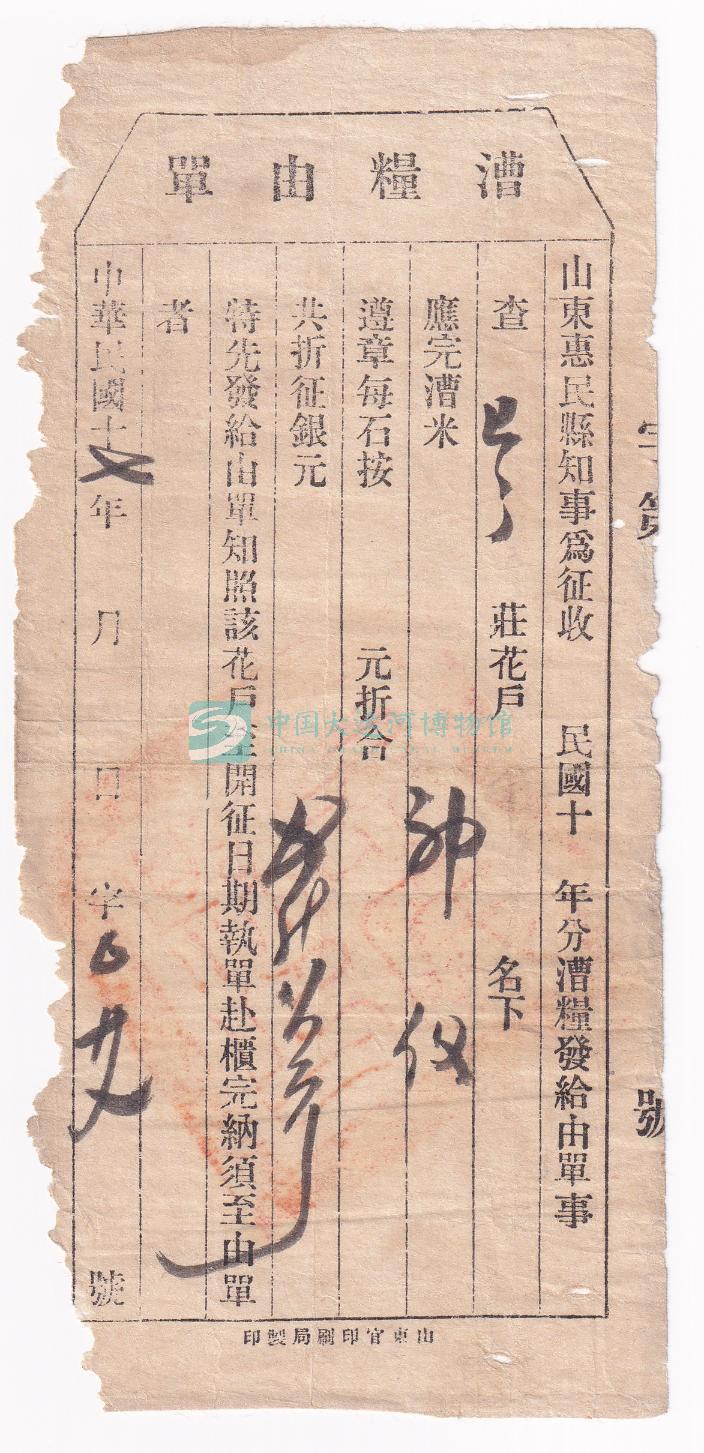 漕糧由單
字第 號
山東惠民縣知事爲征收 民國十 年分漕糧發給由單事
查 莊花戶 名下
應完漕米
遵章每石按 元折合
共折征銀元
特先發給由單知照該花戶至開征日期執單赴櫃完納須至由單
者
中華民國十七年 月 日 字 號
山東官印刷局製印
中国大运河博物馆
CHINA GRAND CANAL MUSEUM